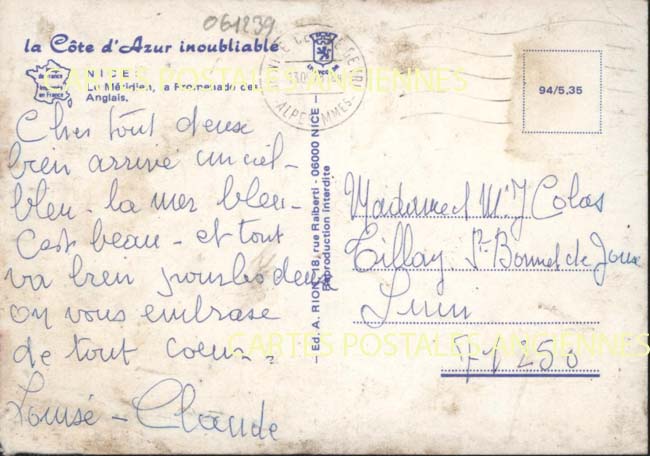 061239
la Côte d'Azur inoubliable
NICE
Le Méridien, la Promenade des
Anglais.
Chers tout deux
bien arrivé un ciel
bleu - la mer bleu -
C'est beau - et tout
va bien pour
on vous embrase
de tout coeur
Louise - Claude
- Ed. A. RION - 18, rue Raiberti - 06000 NICE -
Reproduction interdite
94/5,35
Madame et Mr J Colas
St Bonnet de Joux
71250
CARTES POSTALES ANCIENNES
CARTES POSTALES ANCIENNES